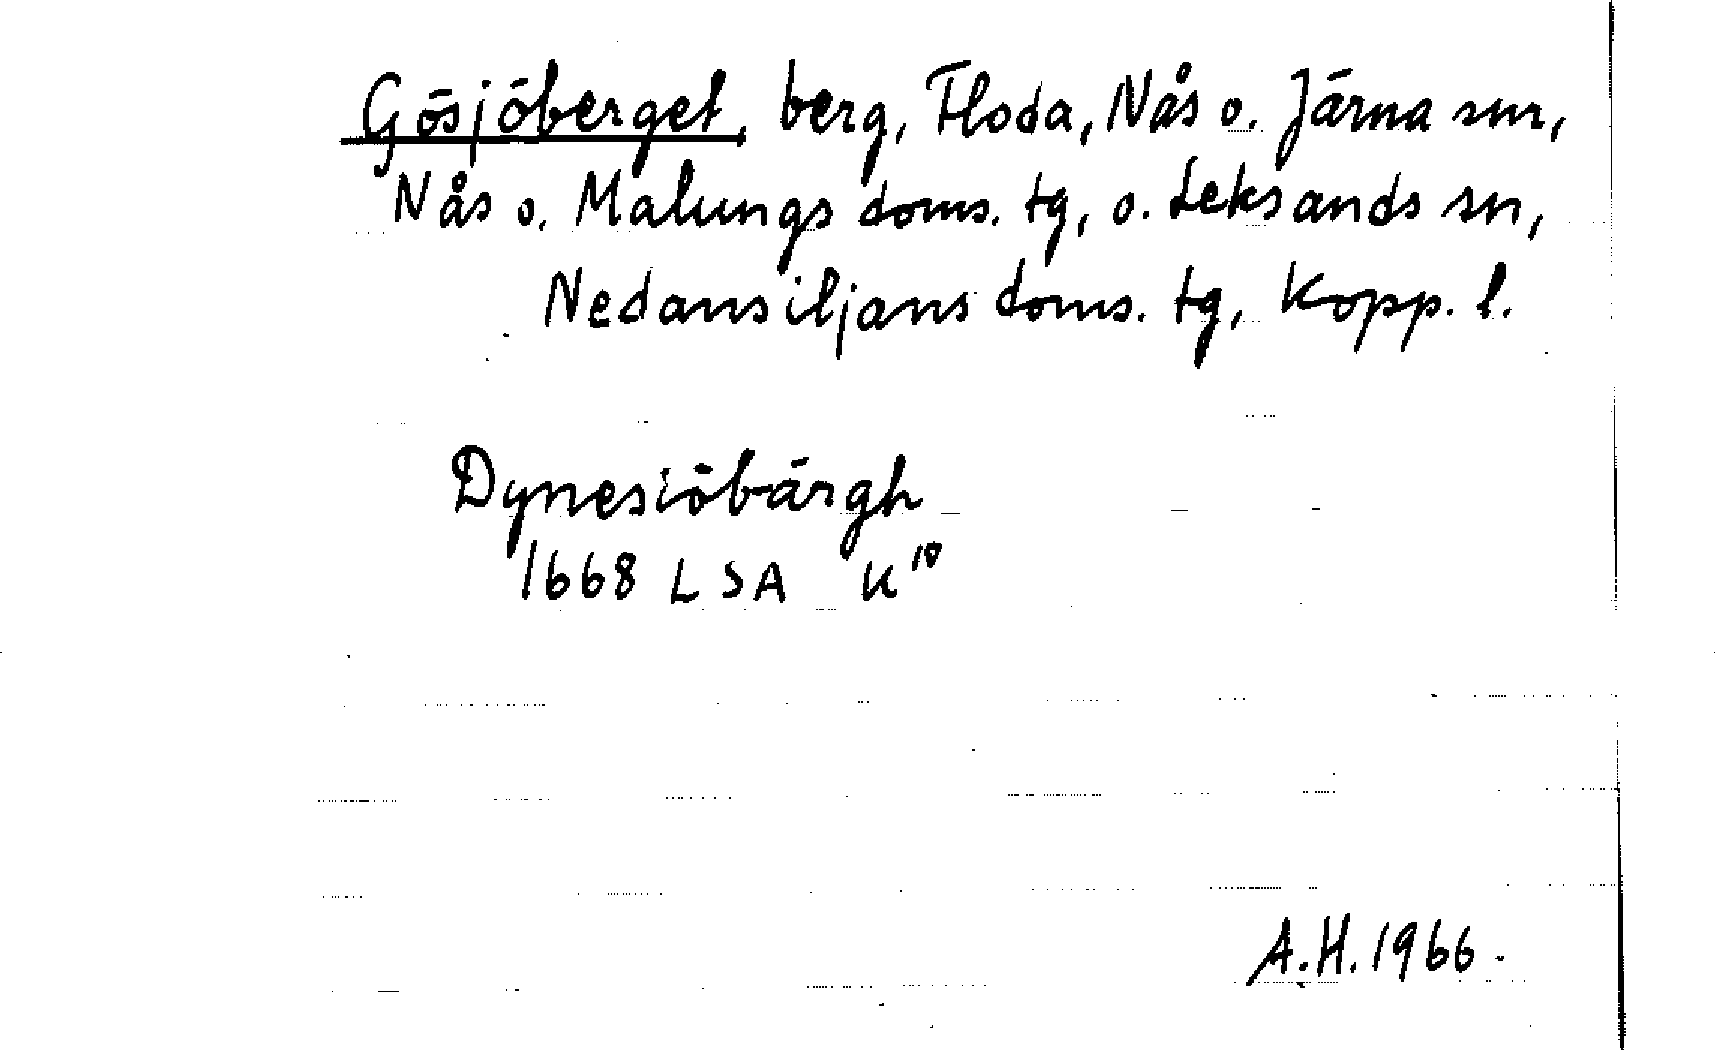 Gösjöberget, berg, Floda, Nås o. Järna snr,
Nås o. Malungs doms. tg, o. Leksands sn,
Nedansiljans doms. tg, Kopp. l.
Dynesiöbärgh
1668 LSA K¹⁰
A.H. 1966.